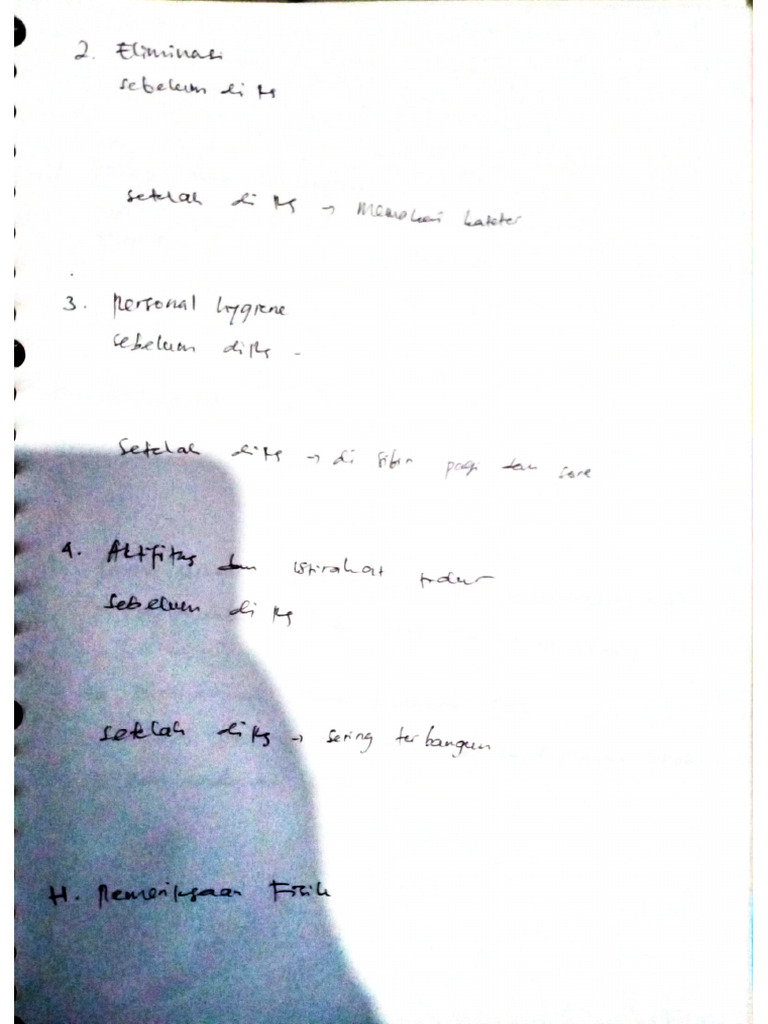 2. Eliminasi
sebelum di RS
setelah di RS → memakai kateter
3. Personal hygiene
sebelum di RS -
Setelah di RS → di sibin pagi dan sore
4. Aktifitas dan istirahat tidur
sebelum di RS
setelah di RS → sering terbangun
H. Pemeriksaan Fisik